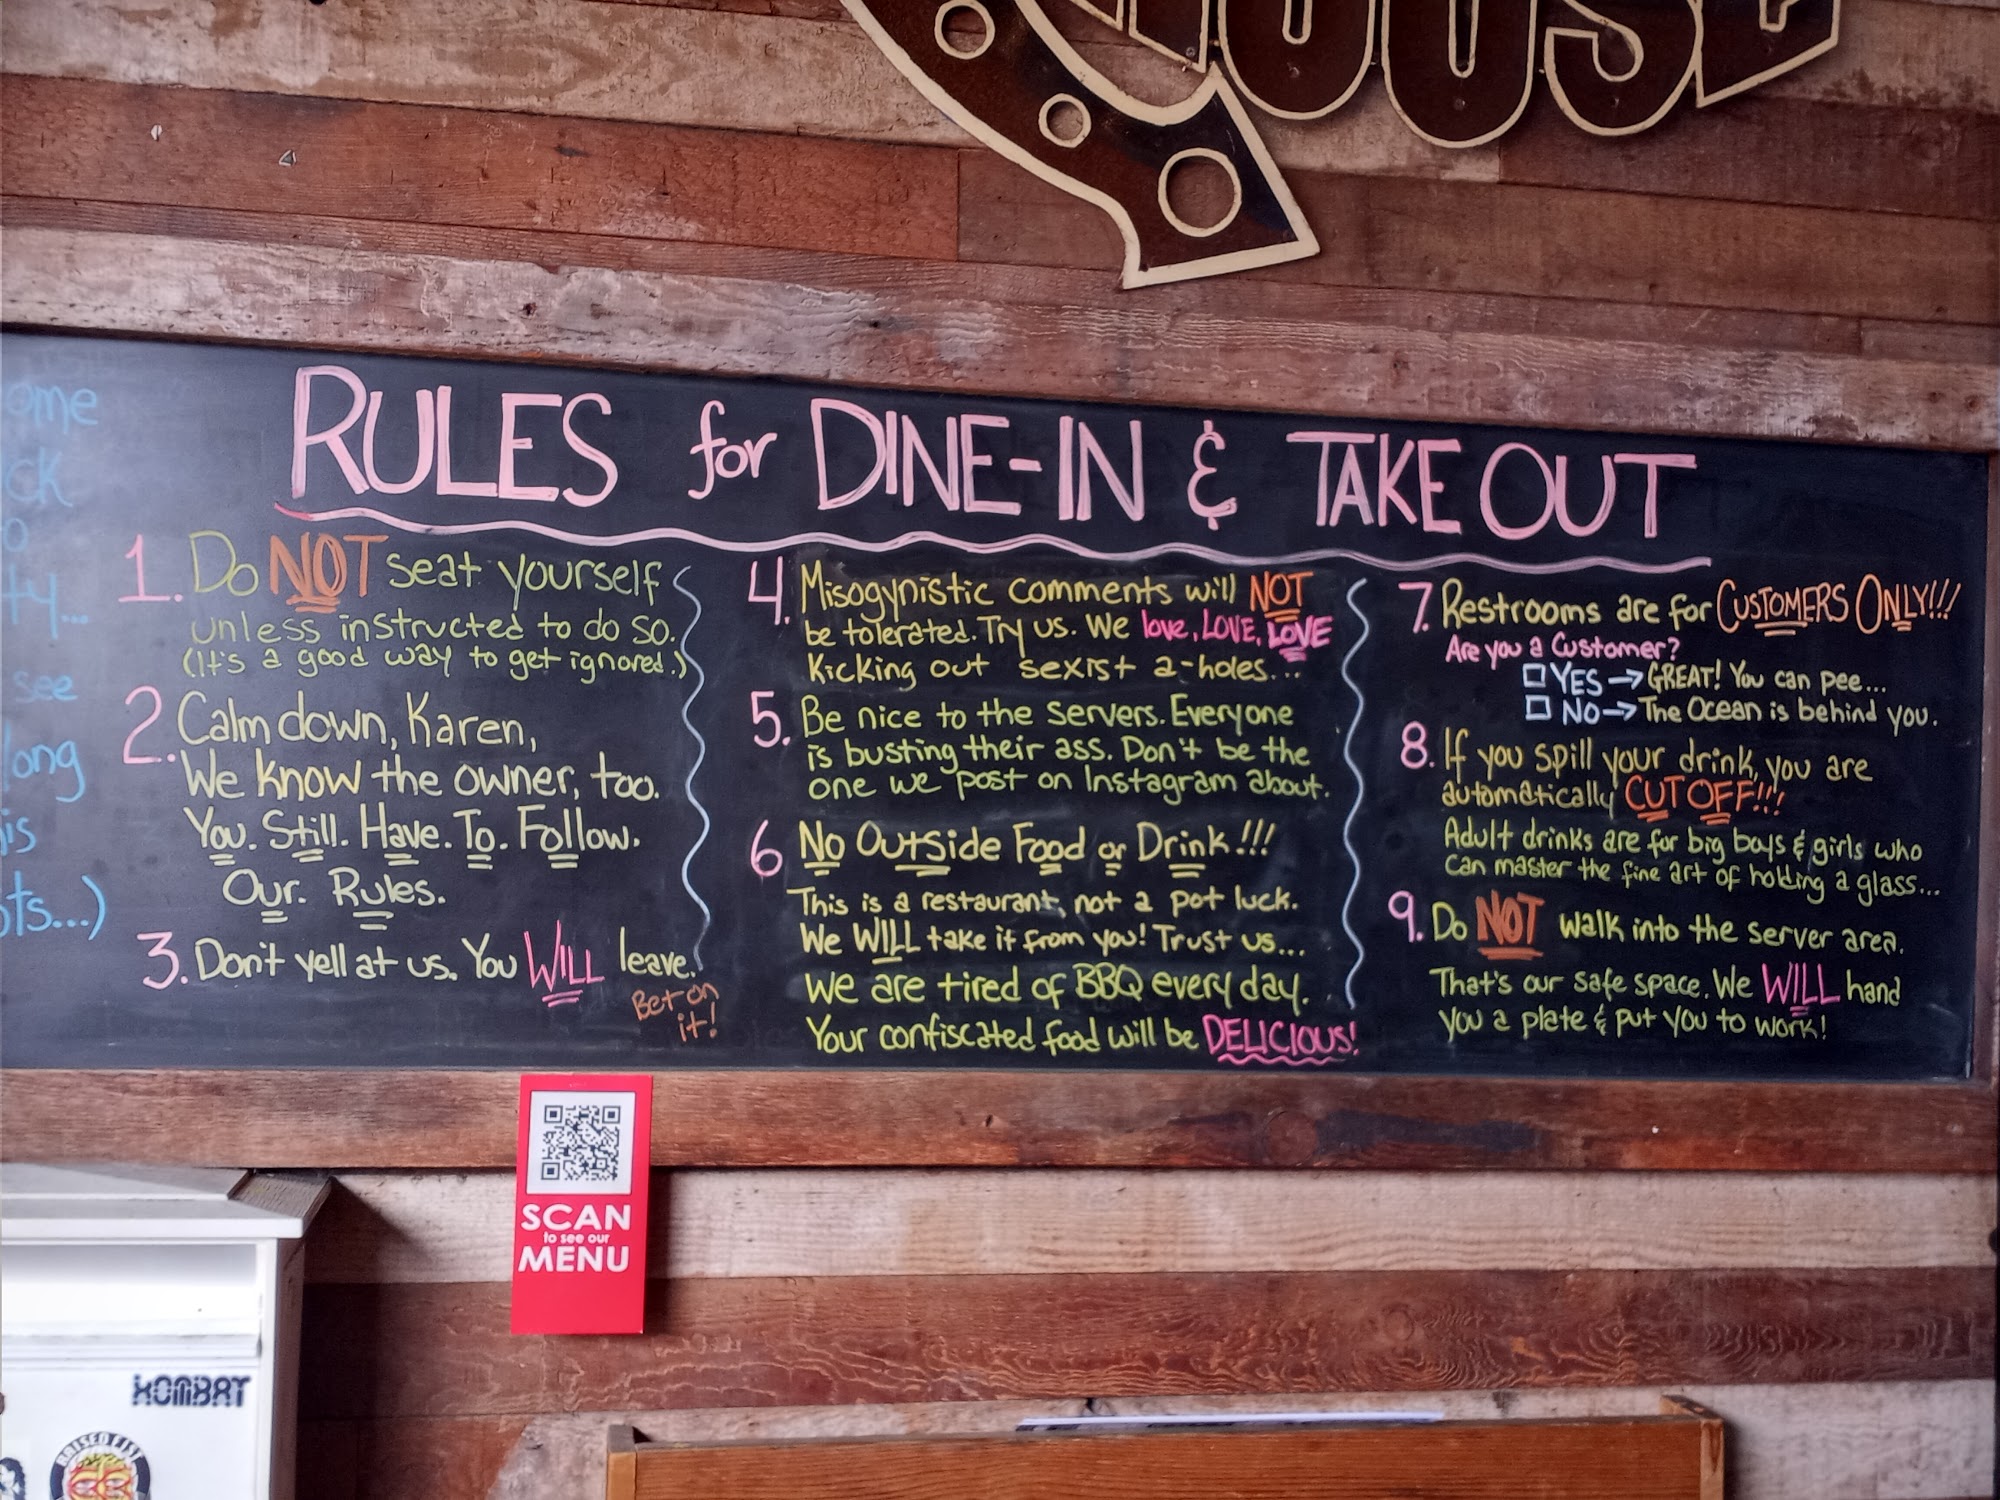 OUSE
RULES for DINE-IN & TAKE OUT
1. Do NOT seat yourself
unless instructed to do so.
(It's a good way to get ignored.)
2. Calm down, Karen,
We know the owner, too.
You. Still. Have. To. Follow.
Our. Rules.
3. Don't yell at us. You WILL leave.
Bet on
it!
4. Misogynistic comments will NOT
be tolerated. Try us. We love, LOVE, LOVE
Kicking out sexist a-holes...
5. Be nice to the servers. Everyone
is busting their ass. Don't be the
one we post on Instagram about.
6 No Outside Food or Drink!!!
This is a restaurant, not a pot luck.
We WILL take it from you! Trust us...
We are tired of BBQ every day.
Your confiscated food will be DELICIOUS!
7. Restrooms are for CUSTOMERS ONLY!!!
Are you a Customer?
YES → GREAT! You can pee...
NO → The Ocean is behind you.
8. If you spill your drink, you are
automatically CUT OFF!!!
Adult drinks are for big boys & girls who
can master the fine art of holding a glass...
9. Do NOT walk into the server area.
That's our safe space. We WILL hand
you a plate & put you to work!
ome
ck
o
ty...
see
long
is
ots...)
SCAN
to see our
MENU
KOMBAT
RAISED FIST